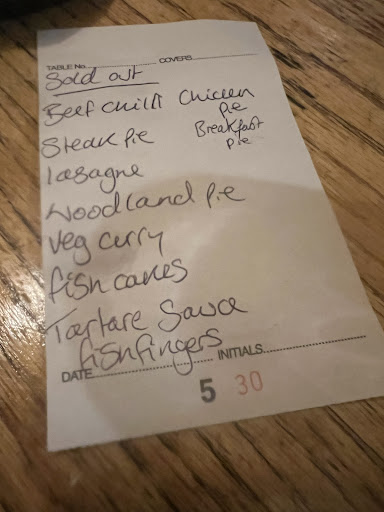 TABLE No. COVERS
Sold out
Beef Chilli Chicken Pie
Steak Pie Breakfast Pie
lasagne
Woodland Pie
Veg curry
fish cakes
Tartare Sauce
fishfingers
DATE INITIALS
5 30